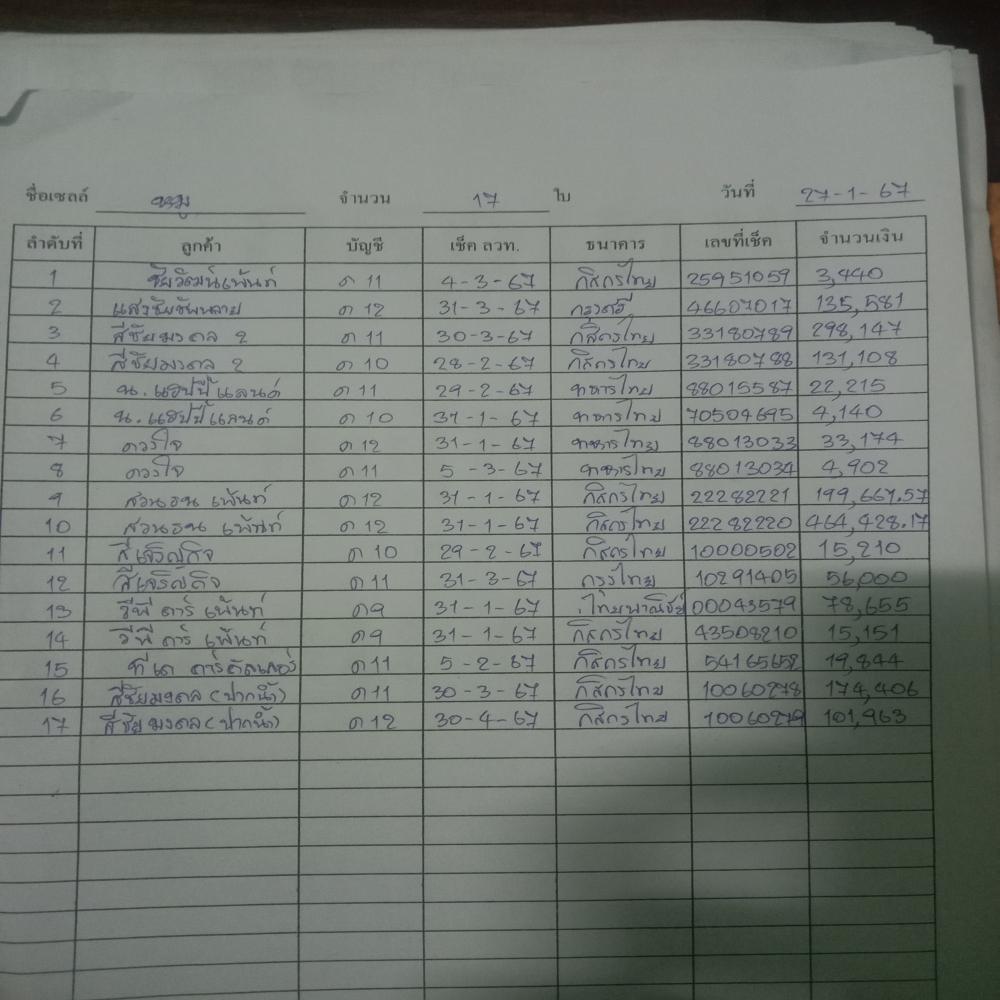 ชื่อเซลล์ หมู จำนวน 17 ใบ วันที่ 27-1-67
ลำดับที่ ลูกค้า บัญชี เช็ค ลวท. ธนาคาร เลขที่เช็ค จำนวนเงิน
1 ชัยวัฒน์เพ้นท์ ด 11 4-3-67 กสิกรไทย 25951059 3,440
2 ด 12 31-3-67 กรุงศรี 46607017 135,581
3 สีชัยมงคล 2 ด 11 30-3-67 กสิกรไทย 33180789 298,147
4 สีชัยมงคล 2 ด 10 28-2-67 กสิกรไทย 33180788 131,108
5 น. แฮปปี้แลนด์ ด 11 29-2-67 ทหารไทย 88015587 22,215
6 น. แฮปปี้แลนด์ ด 10 31-1-67 ทหารไทย 70504695 4,140
7 ดวงใจ ด 12 31-1-67 ทหารไทย 88013033 33,174
8 ดวงใจ ด 11 5-3-67 ทหารไทย 88013034 4,902
9 สวนธน เพ้นท์ ด 12 31-1-67 กสิกรไทย 22282221 199,667.57
10 สวนธน เพ้นท์ ด 12 31-1-67 กสิกรไทย 22282220 464,428.17
11 สีเจริญกิจ ด 10 29-2-67 กสิกรไทย 10000502 15,210
12 สีเจริญกิจ ด 11 31-3-67 กรุงไทย 10291405 56,000
13 วีพี คาร์ เพ้นท์ ด 9 31-1-67 ไทยพาณิชย์ 00043579 78,655
14 วีพี คาร์ เพ้นท์ ด 9 31-1-67 กสิกรไทย 43508210 15,151
15 ทีเค คาร์คัลเลอร์ ด 11 5-2-67 กสิกรไทย 54165652 19,844
16 สีชัยมงคล (ปากน้ำ) ด 11 30-3-67 กสิกรไทย 10060278 174,406
17 สีชัยมงคล (ปากน้ำ) ด 12 30-4-67 กสิกรไทย 10060279 101,963